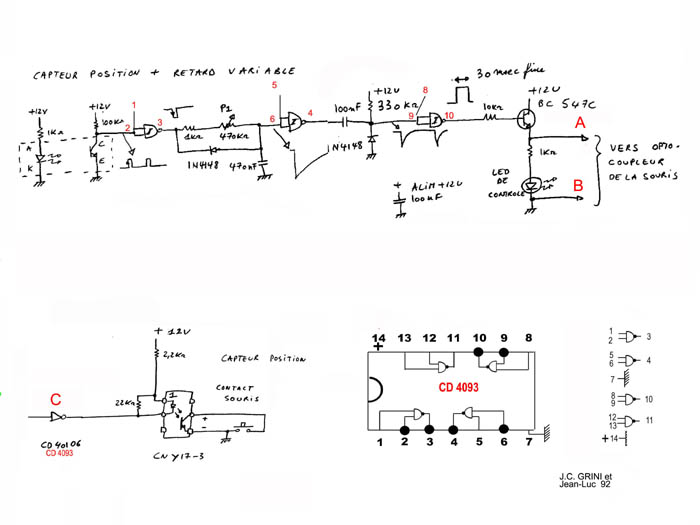 CAPTEUR POSITION + RETARD VARIABLE
+12V
1KΩ
A
K
+12V
100KΩ
C
E
1
2
3
1KΩ
P1
470KΩ
1N4148
470nF
5
6
4
100nF
+12V
330KΩ
1N4148
8
9
10
30 msec fixe
10KΩ
+12V
BC 547C
A
1KΩ
B
LED
DE
CONTROLE
VERS OPTO-
COUPLEUR
DE LA SOURIS
+ ALIM +12V
100uF
+ 12V
2,2KΩ
CAPTEUR POSITION
C
22KΩ
1
CONTACT
SOURIS
+
-
CD 40106
CD 4093
CNY17-3
14 13 12 11 10 9 8
+
CD 4093
1 2 3 4 5 6 7
1
2
3
5
6
4
7
8
9
10
12
13
11
+14
J.C. GRINI et
Jean-Luc 92